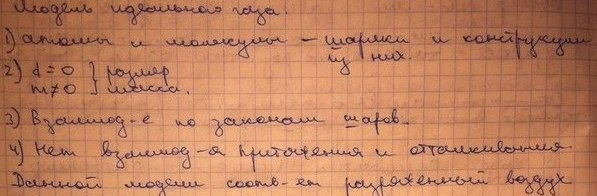 Модель идеального газа.
1) атомы и молекулы – шарики и конструкции
из них.
2) d = 0 } размер
m ≠ 0 } масса.
3) Взаимод-е по законам шаров.
4) Нет взаимод-я притяжения и отталкивания
Данной модели соотв-ет разряженный воздух